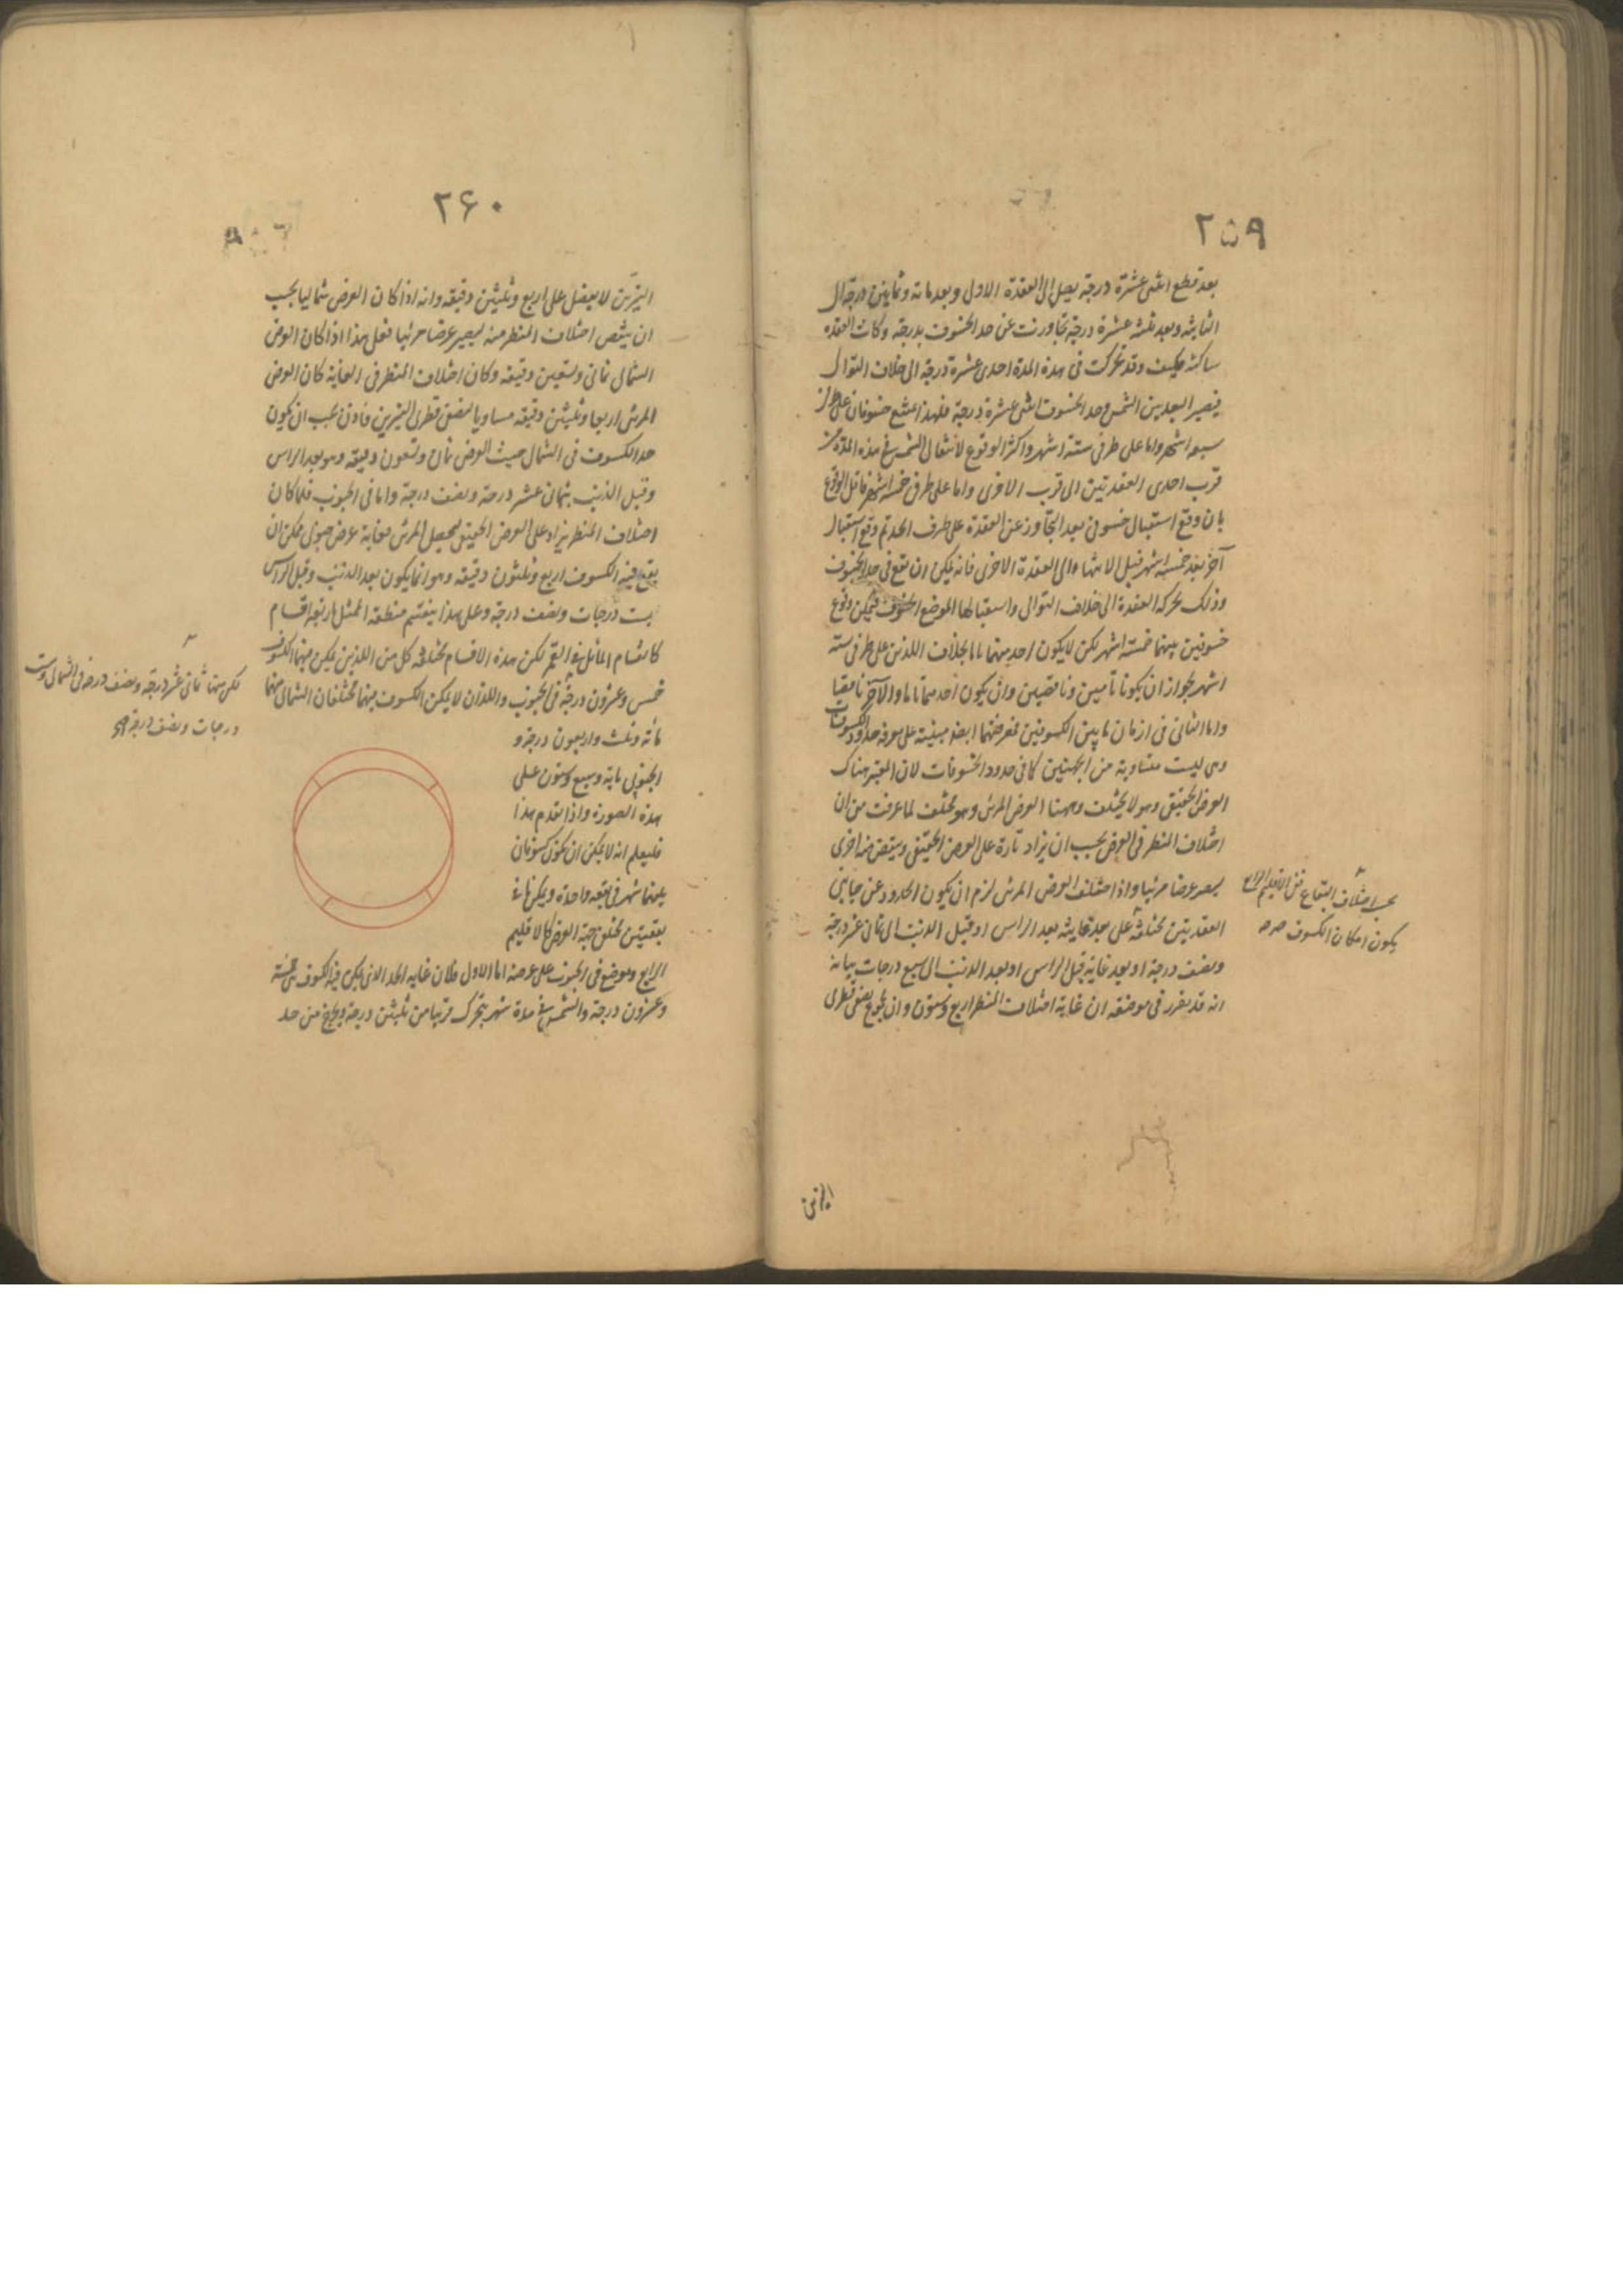 ٢٥٩
بعد قطع اثنتى عشرة درجة يصل الى العقدة الاولى وبعد مائة وثمانين درجة الى
الثانية وبعد ثلثة عشرة درجة تجاوزت عن حد الخسوف بدرجة وكانت العقدة
ساكنة فكيف وقد تحركت فى هذه المدة احدى عشرة درجة الى خلاف التوالى
فيصير البعد بين الشمس وحد الخسوف اثنتى عشرة درجة فلهذا امتنع خسوفان على طرفى
سبعة اشهر واما على طرفى ستة اشهر واكثر الوقوع لانتقال الشمس فى هذه المدة من
قرب احدى العقدتين الى قرب الاخرى واما على طرفى خمسة اشهر فاقل الوقوع
بان وقع استقبال خسوفى بعد التجاوز عن العقدة على طرف الحد ثم وقع استقبال
آخر بعد خمسة اشهر قبل الانتهاء الى العقدة الاخرى فانه يمكن ان تقع فى حد الخسوف
وذلك بحركة العقدة الى خلاف التوالى واستقبالها الموضع الخسوف فيمكن وقوع
خسوفين بينهما خمسة اشهر لكن لا يكون احديهما تاما بخلاف اللذين على طرفى ستة
اشهر بجواز ان يكونا تامين وناقصين وان يكون احدهما تاما والآخر ناقصا
واما الثانى فى ازمان ما بين الكسوفين فمعرفتهما ايضا مبنية على معرفة حدود الكسوفات
وهى ليست متساوية من الجهتين كما فى حدود الخسوفات لان المعتبر هناك
العرض الحقيقى وهو لا يختلف وههنا العرض المرئى وهو مختلف لما عرفت من ان
اختلاف المنظر فى العرض يجب ان يزاد تارة على العرض الحقيقى وينقص منه اخرى
ليصير عرضا مرئيا واذا اختلف العرض المرئى لزم ان يكون الحدود عن جانبى
العقدتين مختلفة على بعد غايته بعد الراس او قبل الذنب الى ثمانى عشر درجة
ونصف درجة او بعد غايته قبل الراس او بعد الذنب الى سبع درجات بيانه
انه قد تقرر فى موضعه ان غاية اختلاف المنظر اربع وستون وان مجموع نصفى قطرى
بحسب اختلاف البقاع ففى الاقليم الرابع
يكون امكان الكسوف صح
النيرين
٢٦٠
النيرين لا يفضل على اربع وثلثين دقيقة وانه اذا كان العرض شماليا يجب
ان ينقص اختلاف المنظر منه ليصير عرضا مرئيا فعلى هذا اذا كان العرض
الشمالى ثمانى وتسعين دقيقة وكان اختلاف المنظر فى الغاية كان العرض
المرئى اربعا وثلثين دقيقة مساويا لنصفى قطرى النيرين فاذن يجب ان يكون
حد الكسوف فى الشمال حيث العرض ثمان وتسعون دقيقة وهو بعد الراس
وقبل الذنب بثمان عشر درجة ونصف درجة واما فى الجنوب فلما كان
اختلاف المنظر يزاد على العرض الحقيقى ليحصل المرئى فغاية عرض جنوبى يمكن ان
يقع فيه الكسوف اربع وثلثون دقيقة وهو انما يكون بعد الذنب وقبل الراس
بست درجات ونصف درجة وعلى هذا ينقسم منطقة الممثل اربعة اقسام
كانقسام المائل فى القمر لكن هذه الاقسام مختلفة كل من اللذين يمكن فيهما الكسوف
خمس وعشرون درجة فى الجنوب واللذان لا يمكن الكسوف فيهما مختلفان الشمالى منهما
مائة وثلث واربعون درجة و
الجنوبى مائة وسبع وستون على
هذه الصورة واذا تقدم هذا
فليعلم انه لا يمكن ان يكون كسوفان
بينهما شهر فى بقعة واحدة ويمكن فى
بقعتين مختلفى جهة العرض كالاقليم
الرابع وموضع فى الجنوب على عرضه اما الاول فلان غاية الحد الذى يمكن فيه الكسوف هى خمسة
وعشرون درجة والشمس فى مدة شهر يتحرك قريبا من ثلثين درجة فيخرج من حد
لكن منها ثمانى عشر درجة ونصف درجة فى الشمال وست
درجات ونصف درجة صح